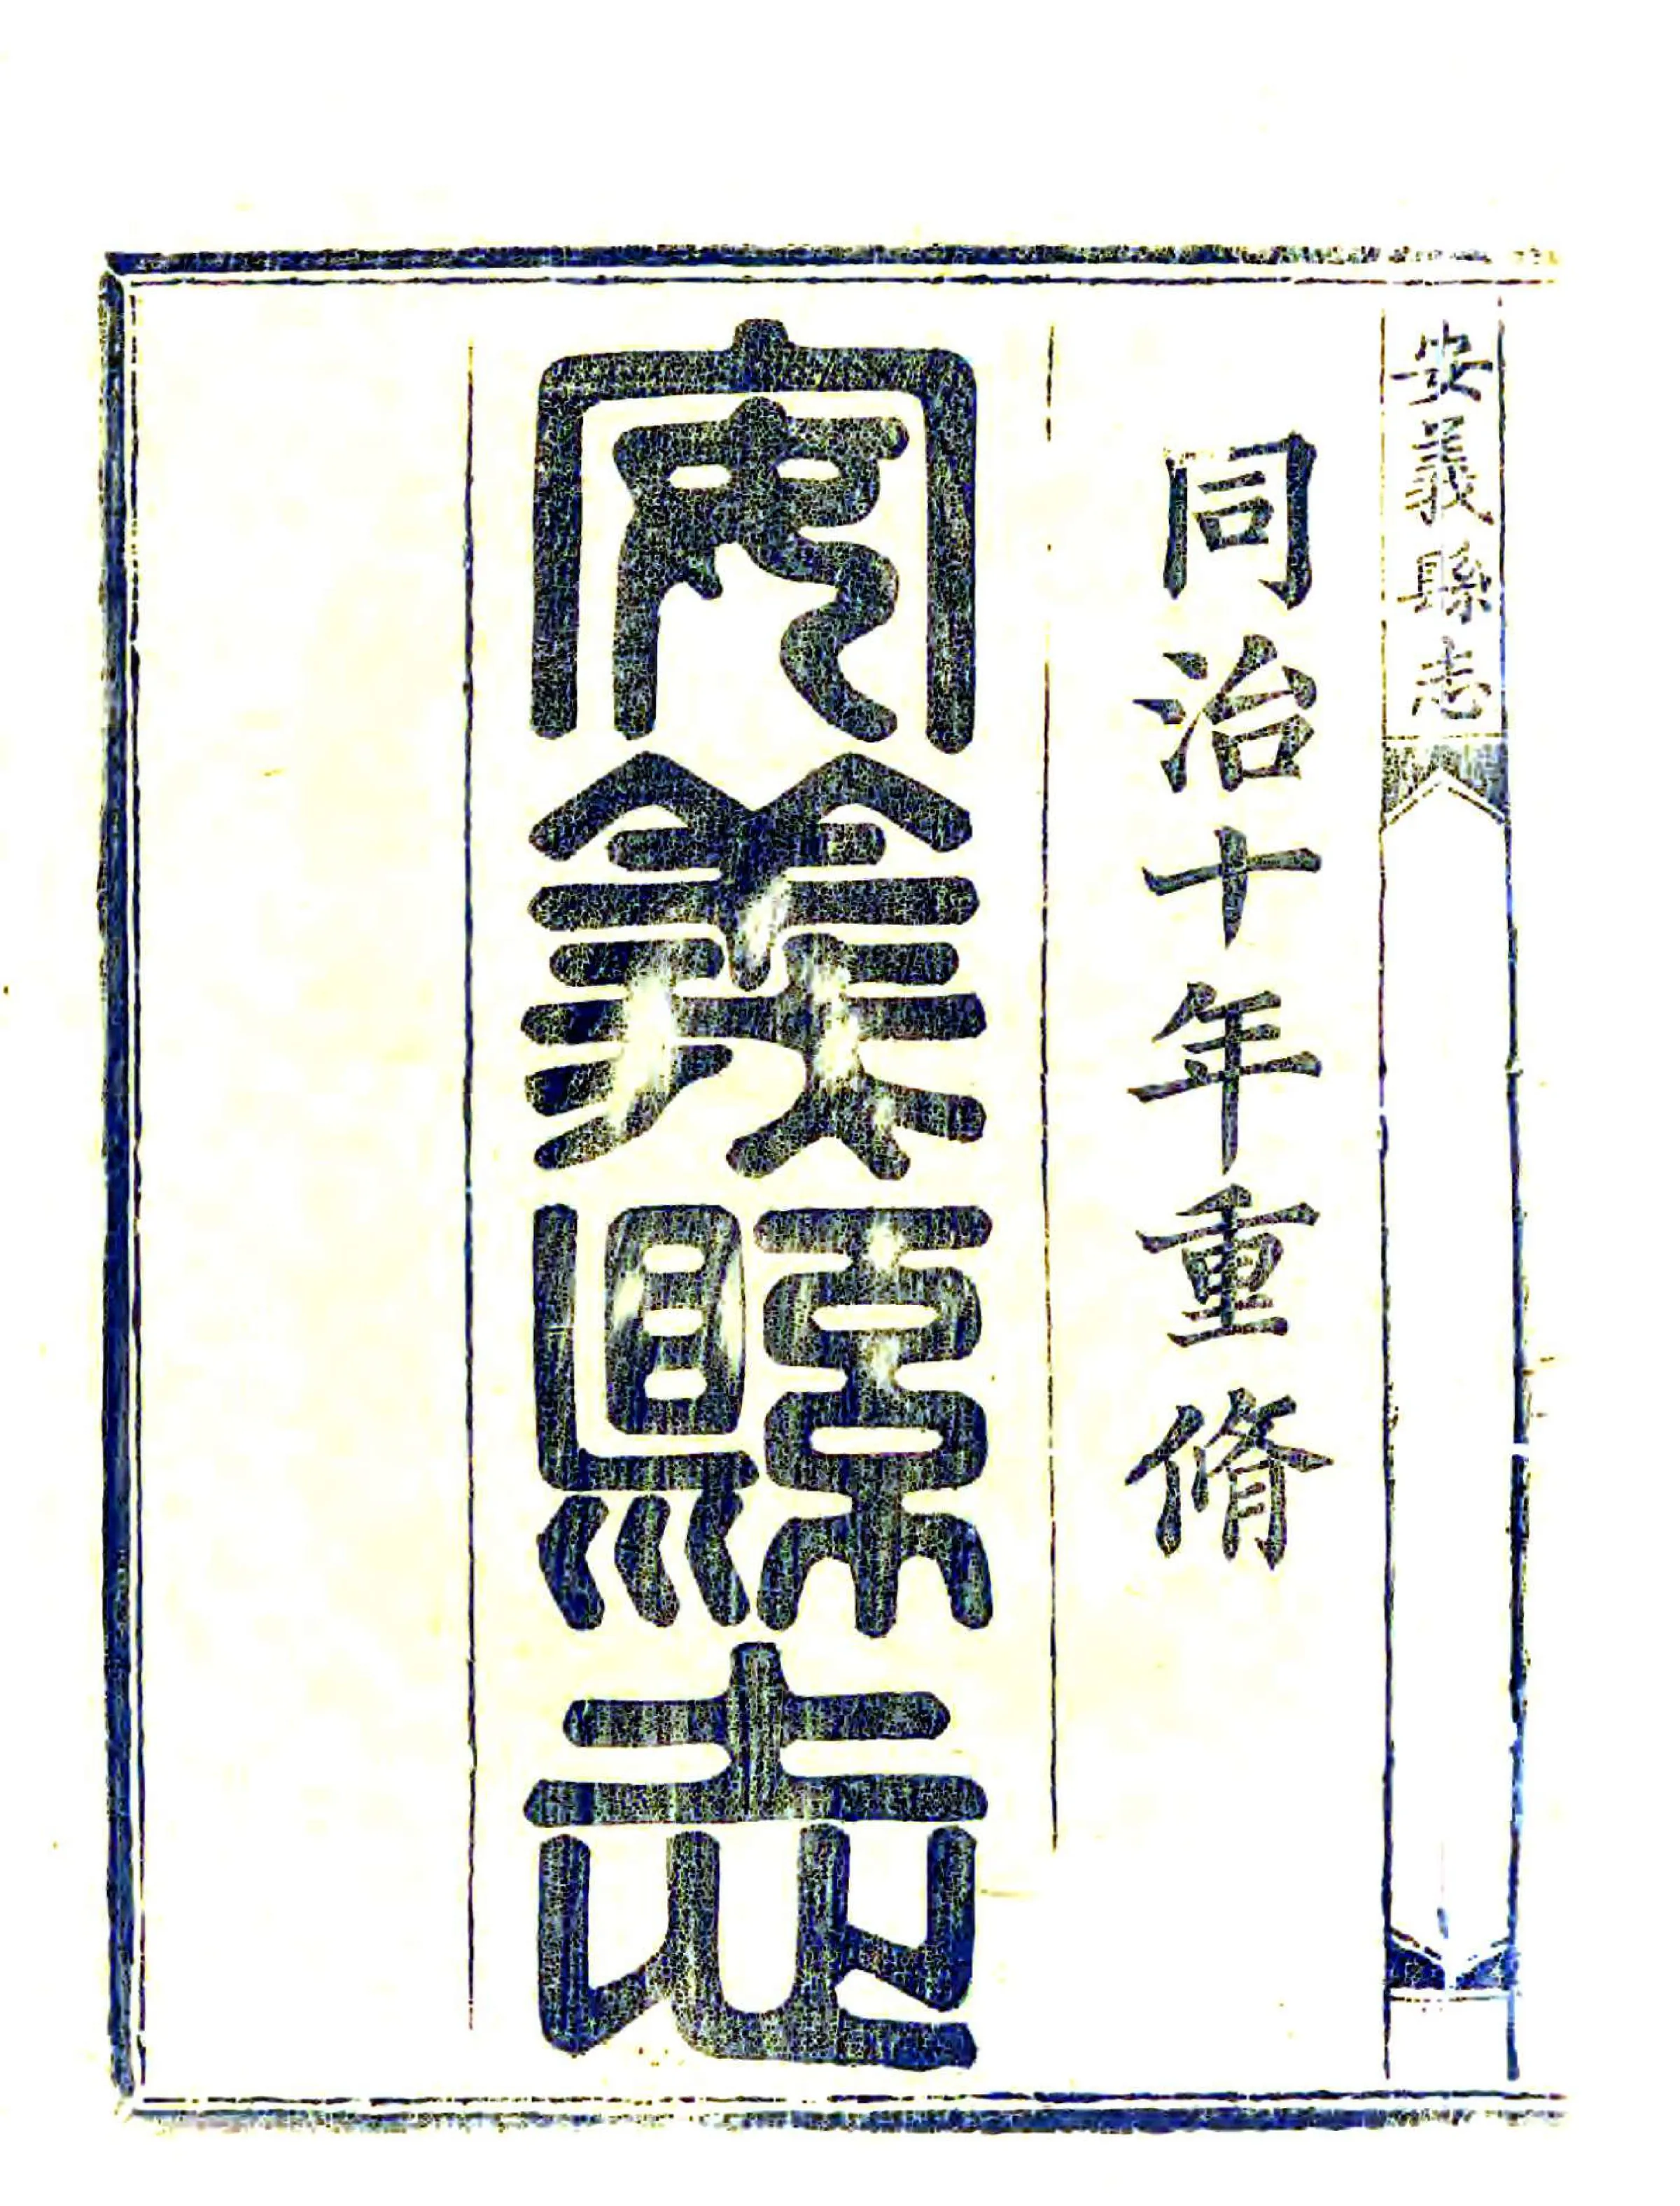 安義縣志
同治十年重脩
安義縣志